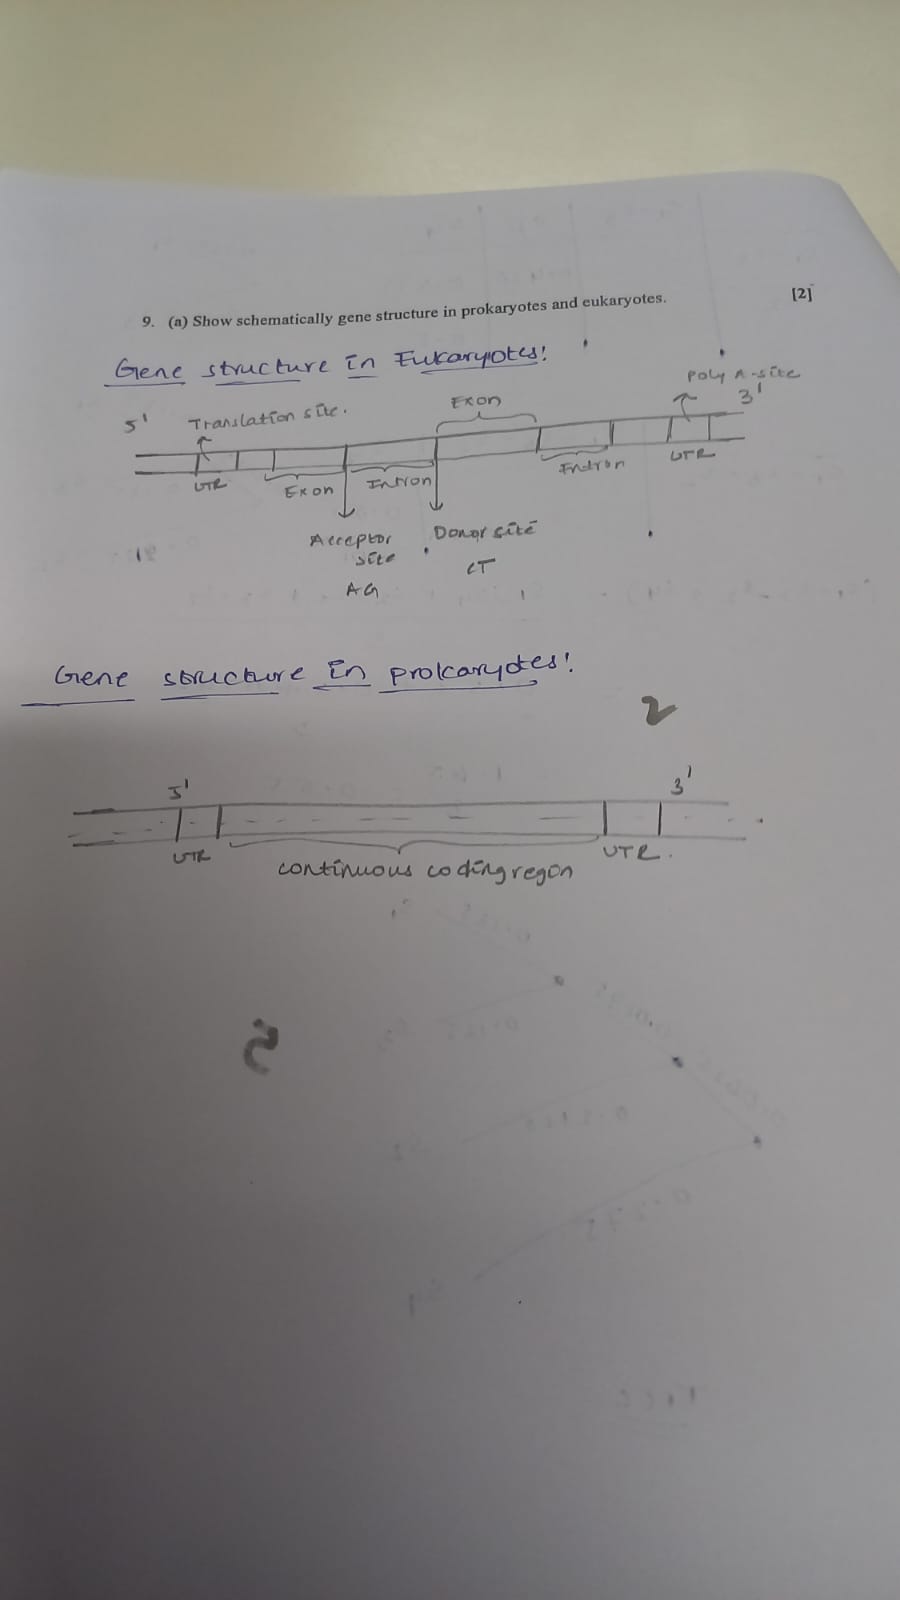 9. (a) Show schematically gene structure in prokaryotes and eukaryotes. [2]
Gene structure in Eukaryotes!
Poly A-site
5' Translation site. Exon 3'
UTR Exon Intron Intron UTR
Acceptor site Donor site
AG CT
Gene structure in prokaryotes!
2
5' 3'
UTR continuous coding regon UTR.